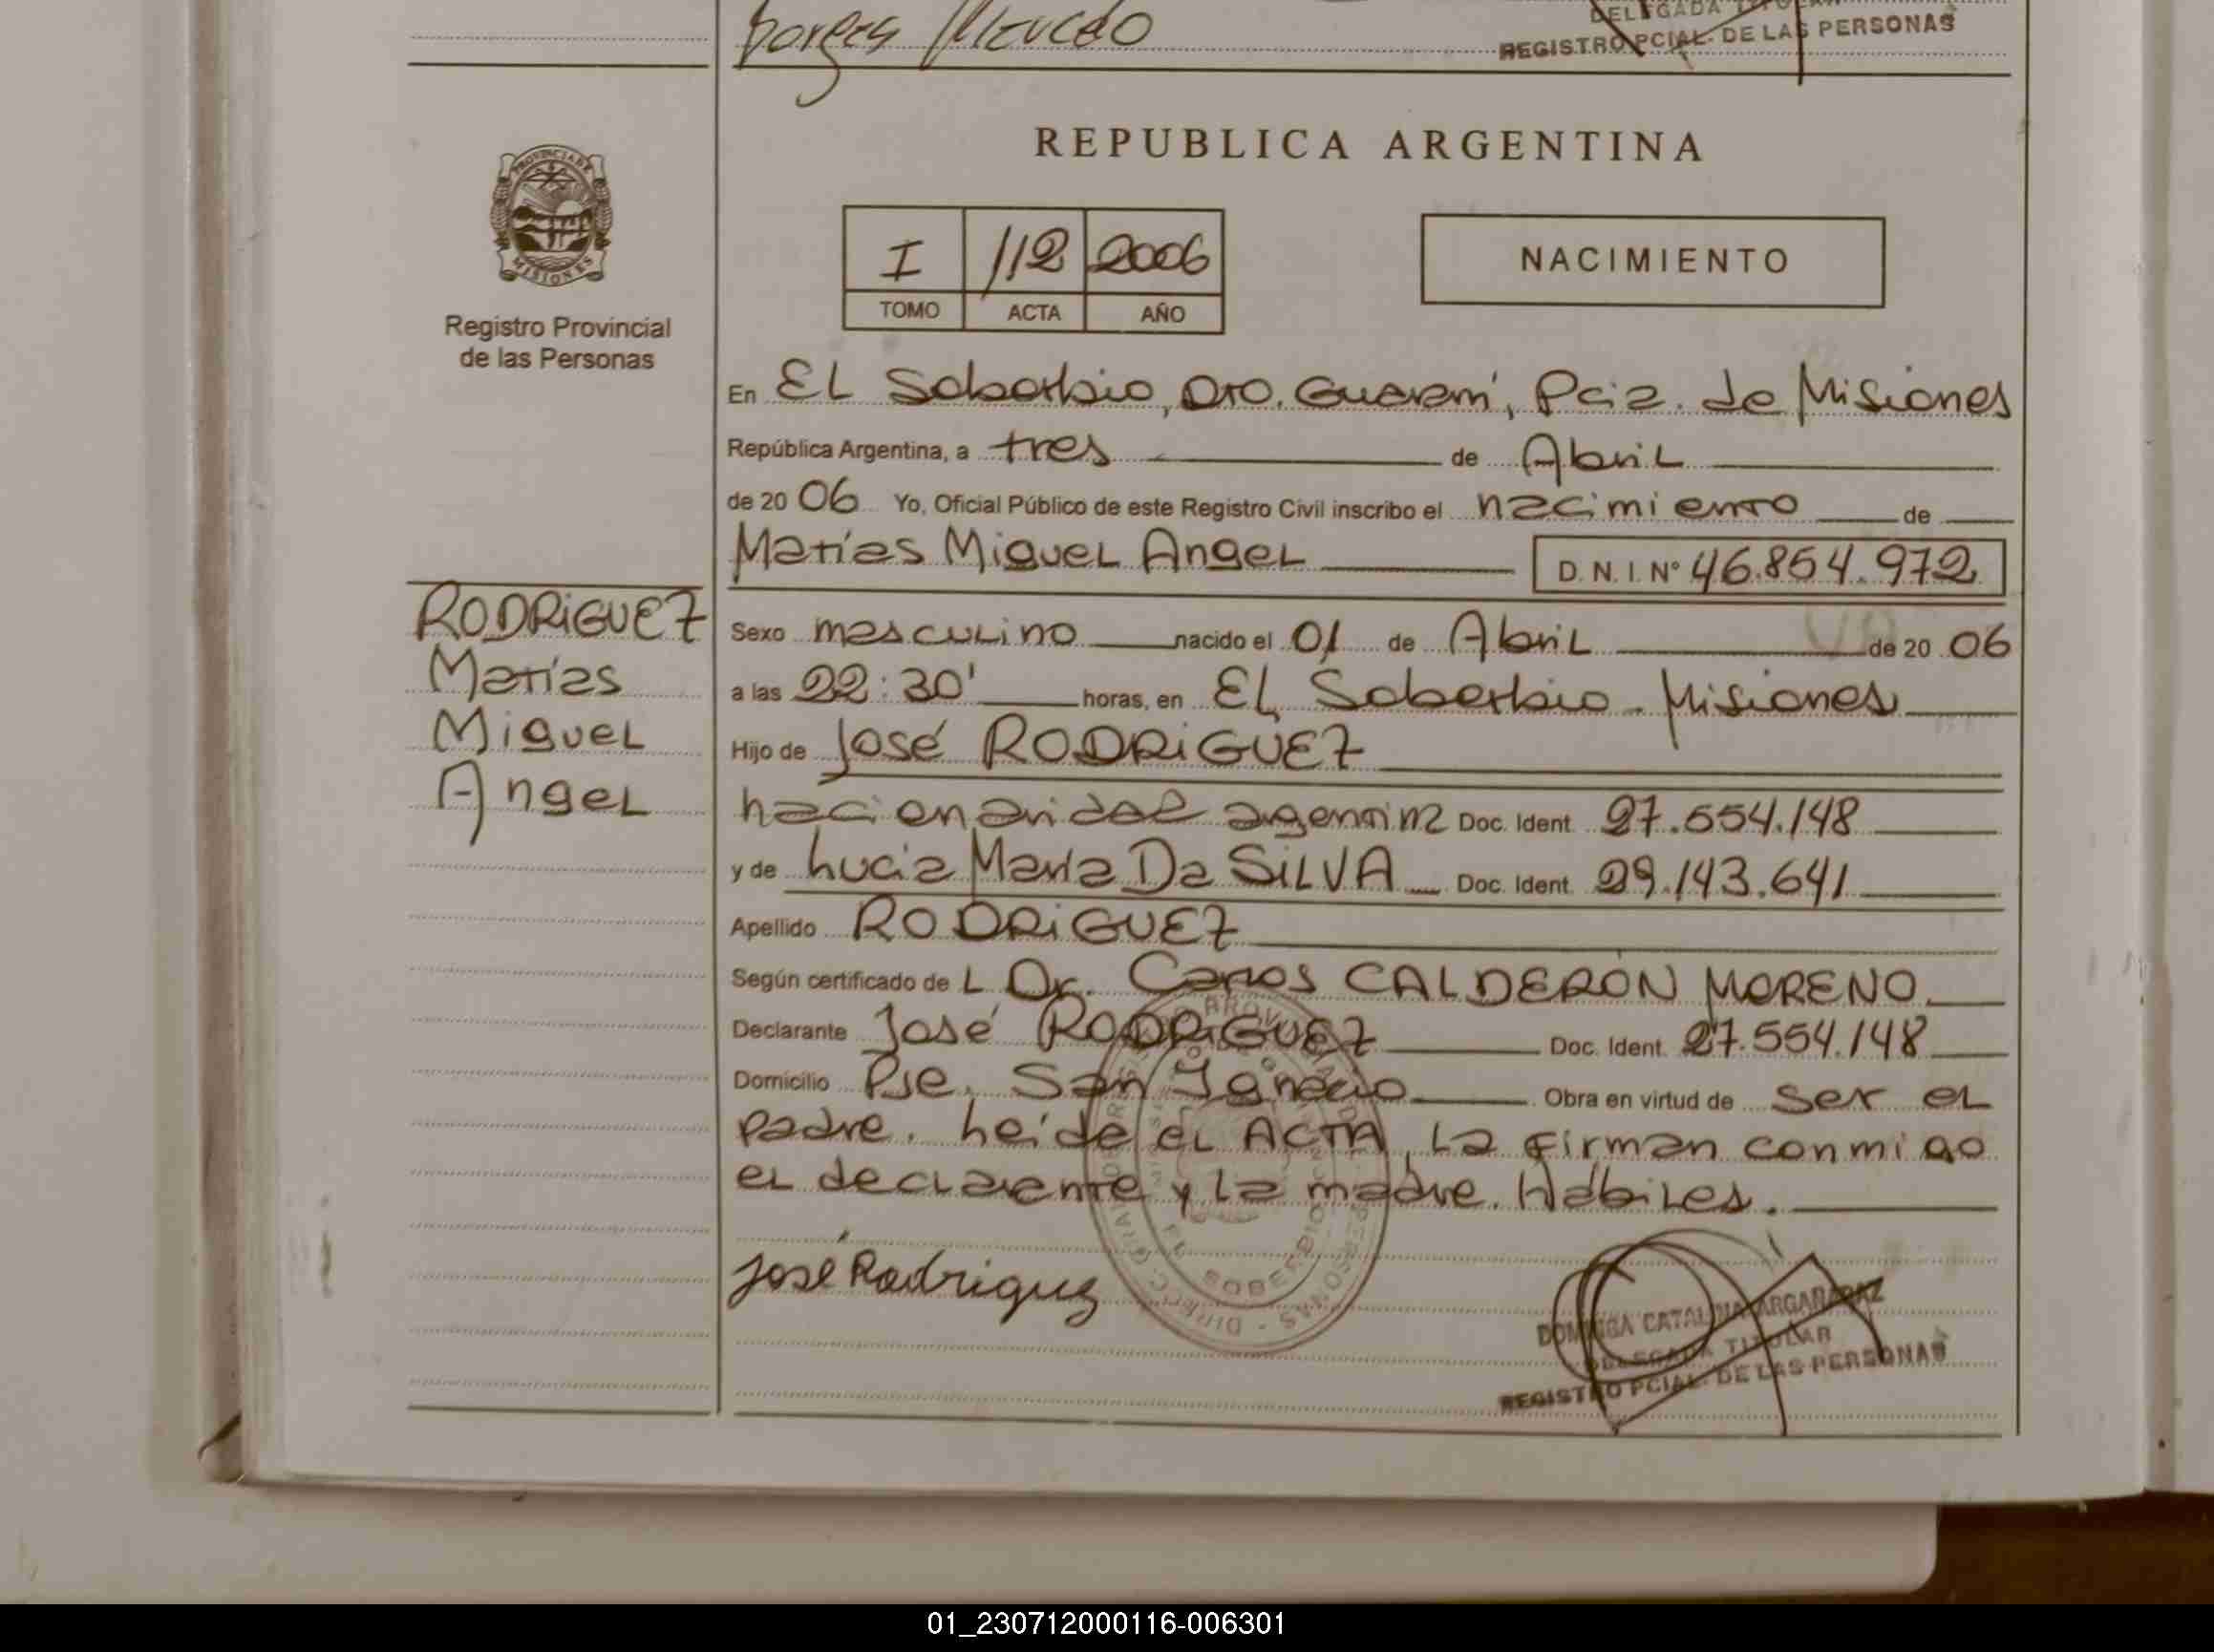 Borges Marcelo
DELEGADA TITULAR
REGISTRO PCIAL. DE LAS PERSONAS
PROVINCIA DE
MISIONES
Registro Provincial
de las Personas
REPUBLICA ARGENTINA
I 112 2006
TOMO ACTA AÑO
NACIMIENTO
En EL Soberbio, Dto. Guaraní, Pcia. de Misiones
República Argentina, a tres de Abril
de 20 06 Yo, Oficial Público de este Registro Civil inscribo el nacimiento de
Matías Miguel Angel D.N.I. Nº 46.854.972
RODRiGUEZ
Matías
Miguel
Angel
Sexo masculino nacido el 01 de Abril de 20 06
a las 22:30' horas, en EL Soberbio - Misiones
Hijo de José RODRiGUEZ
nacionalidad argentina Doc. Ident. 27.554.148
y de Lucia María Da SiLVA Doc. Ident. 29.143.641
Apellido RODRiGUEZ
Según certificado de L Dr. Carlos CALDERÓN MORENO
Declarante José RODRiGUEZ Doc. Ident. 27.554.148
Domicilio Pje. San Ignacio Obra en virtud de ser el
padre. Leída el ACTA, la firman conmigo
el declarante y la madre. Hábiles.
José Rodriguez
EL SOBERBIO
DOMINGA CATALINA ARGARAÑAZ
DELEGADA TITULAR
REGISTRO PCIAL. DE LAS PERSONAS
01_230712000116-006301